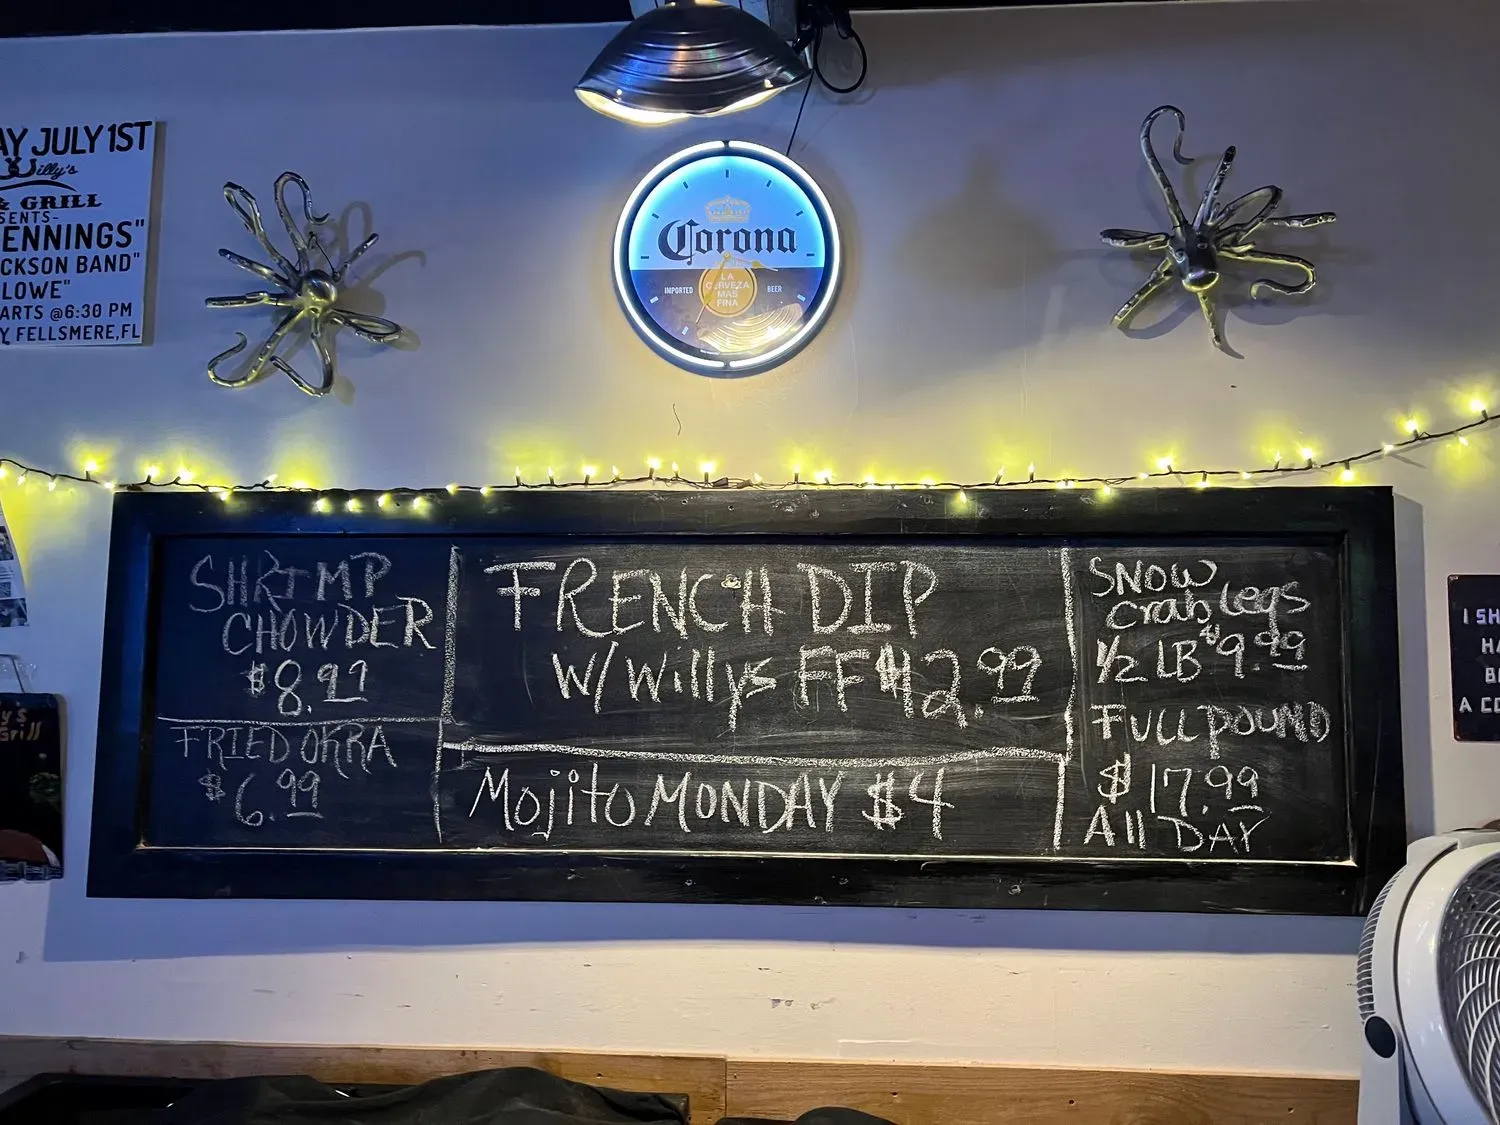 AY JULY 1ST
Willy's
& GRILL
SENTS-
ENNINGS"
CKSON BAND"
LOWE"
ARTS @6:30 PM
Y, FELLSMERE, FL
Corona
IMPORTED
LA
CERVEZA
MAS
FINA
BEER
SHRIMP
CHOWDER
$8.99
FRIED OKRA
$6.99
FRENCH DIP
W/ Willys FF $12.99
Mojito MONDAY $4
SNOW
Crab Legs
1/2 LB $9.99
FULL POUND
$17.99
All DAY
y's
Grill
I SH
HA
BE
A CO